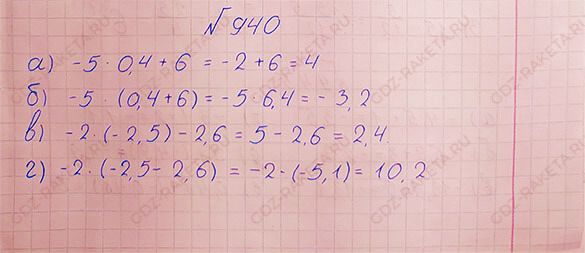 № 940
а) -5 · 0,4 + 6 = -2 + 6 = 4
б) -5 · (0,4 + 6) = -5 · 6,4 = - 3,2
в) -2 · (- 2,5) - 2,6 = 5 - 2,6 = 2,4
г) -2 · (-2,5 - 2,6) = -2 · (-5,1) = 10,2
GDZ-RAKETA.RU